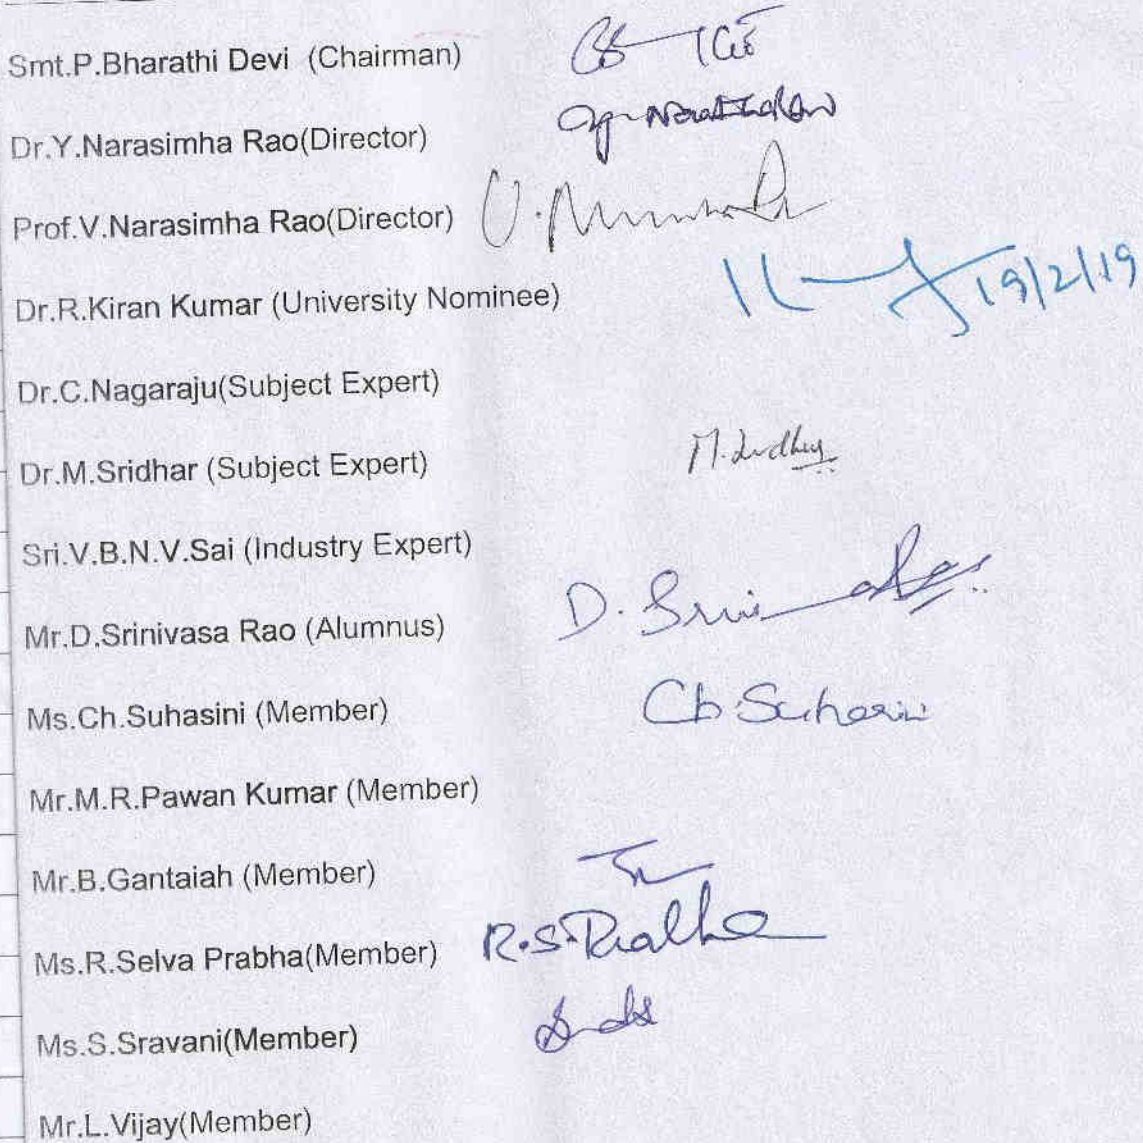 Smt.P.Bharathi Devi (Chairman)
Dr.Y.Narasimha Rao(Director)
Prof.V.Narasimha Rao(Director) V.
Dr.R.Kiran Kumar (University Nominee) 19/2/19
Dr.C.Nagaraju(Subject Expert)
Dr.M.Sridhar (Subject Expert) M.Sridhar
Sri.V.B.N.V.Sai (Industry Expert)
Mr.D.Srinivasa Rao (Alumnus) D.
Ms.Ch.Suhasini (Member) Ch.Suhasini
Mr.M.R.Pawan Kumar (Member)
Mr.B.Gantaiah (Member)
Ms.R.Selva Prabha(Member) R.S.Prabha
Ms.S.Sravani(Member)
Mr.L.Vijay(Member)